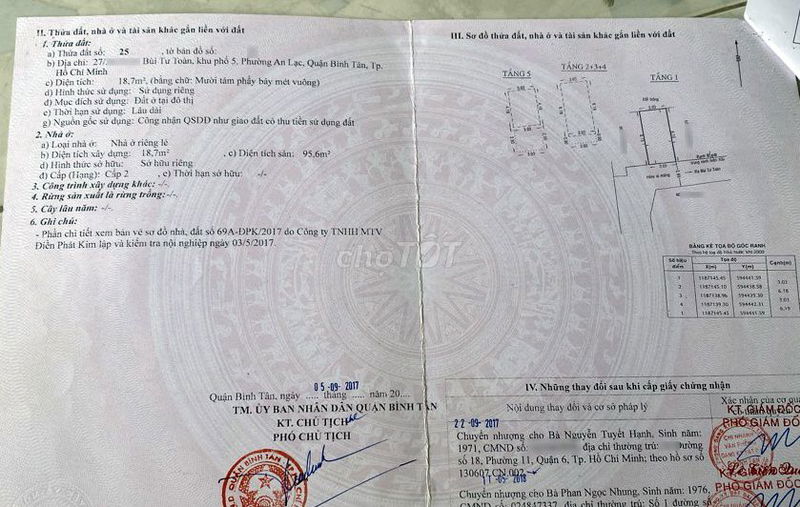 II. Thửa đất, nhà ở và tài sản khác gắn liền với đất
1. Thửa đất:
a) Thửa đất số: 25 , tờ bản đồ số:
b) Địa chỉ: 27/ Bùi Tư Toàn, khu phố 5, Phường An Lạc, Quận Bình Tân, Tp.
Hồ Chí Minh
c) Diện tích: 18,7m², (bằng chữ: Mười tám phẩy bảy mét vuông)
d) Hình thức sử dụng: Sử dụng riêng
đ) Mục đích sử dụng: Đất ở tại đô thị
e) Thời hạn sử dụng: Lâu dài
g) Nguồn gốc sử dụng: Công nhận QSDĐ như giao đất có thu tiền sử dụng đất
2. Nhà ở:
a) Loại nhà ở: Nhà ở riêng lẻ
b) Diện tích xây dựng: 18,7m², c) Diện tích sàn: 95,6m²
d) Hình thức sở hữu: Sở hữu riêng
đ) Cấp (Hạng): Cấp 2 , e) Thời hạn sở hữu: -/-
3. Công trình xây dựng khác: -/-
4. Rừng sản xuất là rừng trồng: -/-
5. Cây lâu năm: -/-
6. Ghi chú:
- Phần chi tiết xem bản vẽ sơ đồ nhà, đất số 69A-ĐPK/2017 do Công ty TNHH MTV
Điền Phát Kim lập và kiểm tra nội nghiệp ngày 03/5/2017.
05-09-2017
Quận Bình Tân, ngày ..... tháng ..... năm 20....
TM. ỦY BAN NHÂN DÂN QUẬN BÌNH TÂN
KT. CHỦ TỊCH
PHÓ CHỦ TỊCH
III. Sơ đồ thửa đất, nhà ở và tài sản khác gắn liền với đất
TẦNG 5
TẦNG 2+3+4
TẦNG 1
BẢNG KÊ TỌA ĐỘ GÓC RANH
Số hiệu điểm
TỌA ĐỘ
X(m) Y(m)
Cạnh(m)
1 1187145.45 594441.59
2 1187145.10 594438.58
3 1187138.96 594439.30
4 1187139.30 594442.31
1 1187145.45 594441.59
3.03
6.18
3.03
6.19
choTỐT
IV. Những thay đổi sau khi cấp giấy chứng nhận
Nội dung thay đổi và cơ sở pháp lý
Xác nhận của cơ qua
22-09-2017
Chuyển nhượng cho Bà Nguyễn Tuyết Hạnh, Sinh năm
1971, CMND số: địa chỉ thường trú: Đường
số 18, Phường 11, Quận 6, Tp. Hồ Chí Minh; theo hồ sơ số
130607.CN.002
11-05-2018
Chuyển nhượng cho Bà Phan Ngọc Nhung, Sinh năm: 1976,
CMND số: 024847337, địa chỉ thường trú: Số 1 đường số
KT. GIÁM ĐỐC
PHÓ GIÁM ĐỐC
KT. GIÁM ĐỐC
PHÓ GIÁM ĐỐC